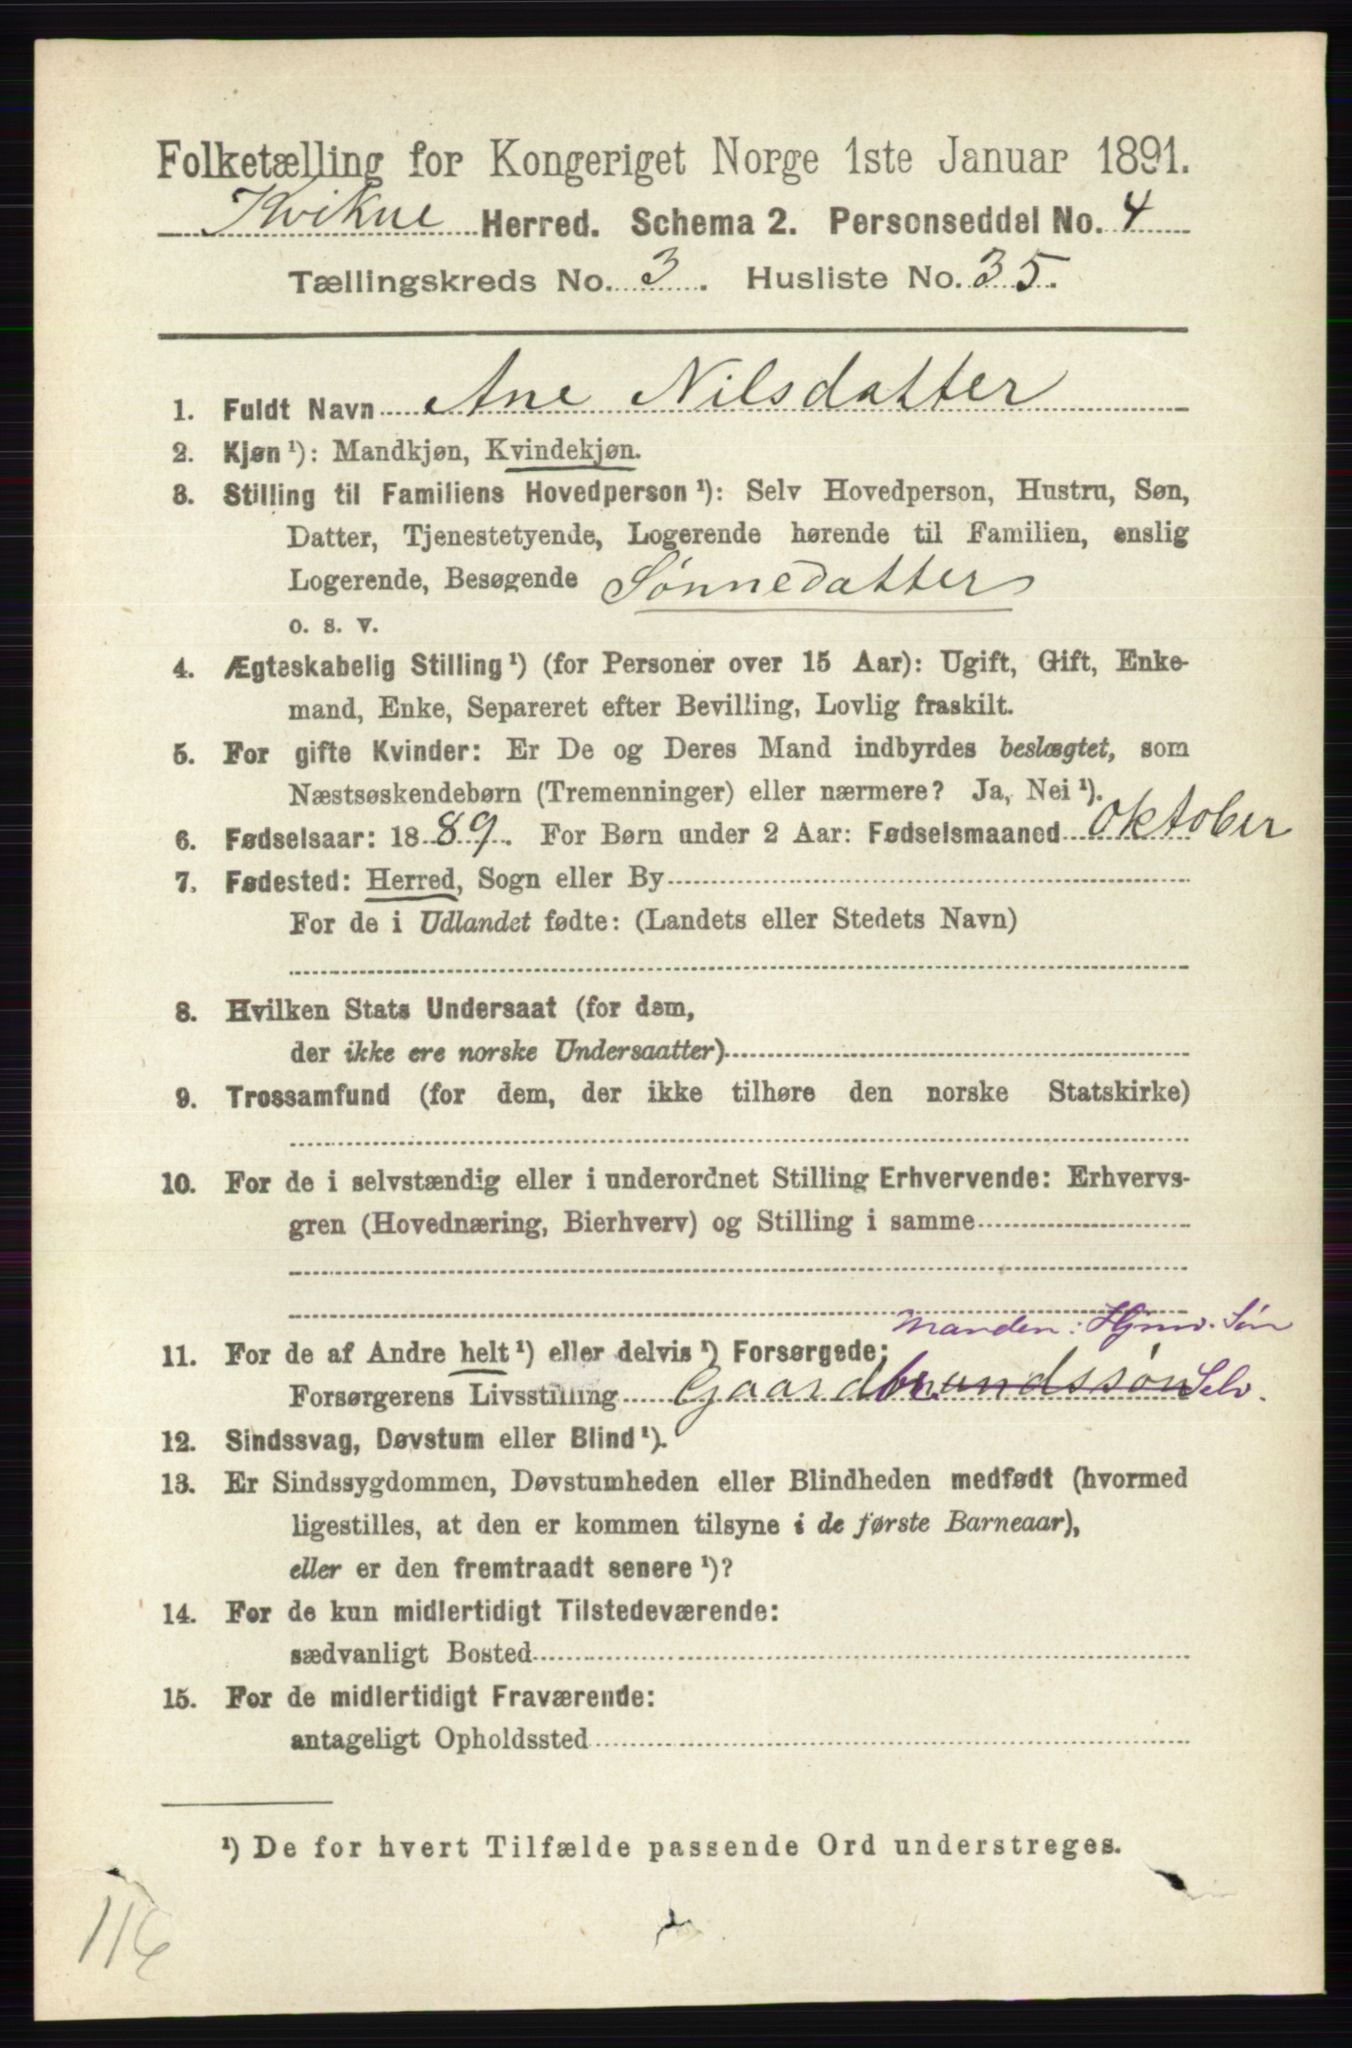 Folketælling for Kongeriget Norge 1ste Januar 1891.
Kvikne Herred. Schema 2. Personseddel No. 4
Tællingskreds No. 3. Husliste No. 35.
1. Fuldt Navn Ane Nilsdatter
2. Kjøn ¹): Mandkjøn, Kvindekjøn.
3. Stilling til Familiens Hovedperson ¹): Selv Hovedperson, Hustru, Søn,
Datter, Tjenestetyende, Logerende hørende til Familien, enslig
Logerende, Besøgende Sønnedatter
o. s. v.
4. Ægteskabelig Stilling ¹) (for Personer over 15 Aar): Ugift, Gift, Enke-
mand, Enke, Separeret efter Bevilling, Lovlig fraskilt.
5. For gifte Kvinder: Er De og Deres Mand indbyrdes beslægtet, som
Næstsøskendebørn (Tremenninger) eller nærmere? Ja, Nei ¹).
6. Fødselsaar: 1889. For Børn under 2 Aar: Fødselsmaaned oktober
7. Fødested: Herred, Sogn eller By
For de i Udlandet fødte: (Landets eller Stedets Navn)
8. Hvilken Stats Undersaat (for dem,
der ikke ere norske Undersaatter)
9. Trossamfund (for dem, der ikke tilhøre den norske Statskirke)
10. For de i selvstændig eller i underordnet Stilling Erhvervende: Erhvervs-
gren (Hovednæring, Bierhverv) og Stilling i samme
Manden: Søn
11. For de af Andre helt ¹) eller delvis ¹) Forsørgede;
Forsørgerens Livsstilling Gaardbrundssøn Selv.
12. Sindssvag, Døvstum eller Blind ¹).
13. Er Sindssygdommen, Døvstumheden eller Blindheden medfødt (hvormed
ligestilles, at den er kommen tilsyne i de første Barneaar),
eller er den fremtraadt senere ¹)?
14. For de kun midlertidigt Tilstedeværende:
sædvanligt Bosted
15. For de midlertidigt Fraværende:
antageligt Opholdssted
¹) De for hvert Tilfælde passende Ord understreges.
116